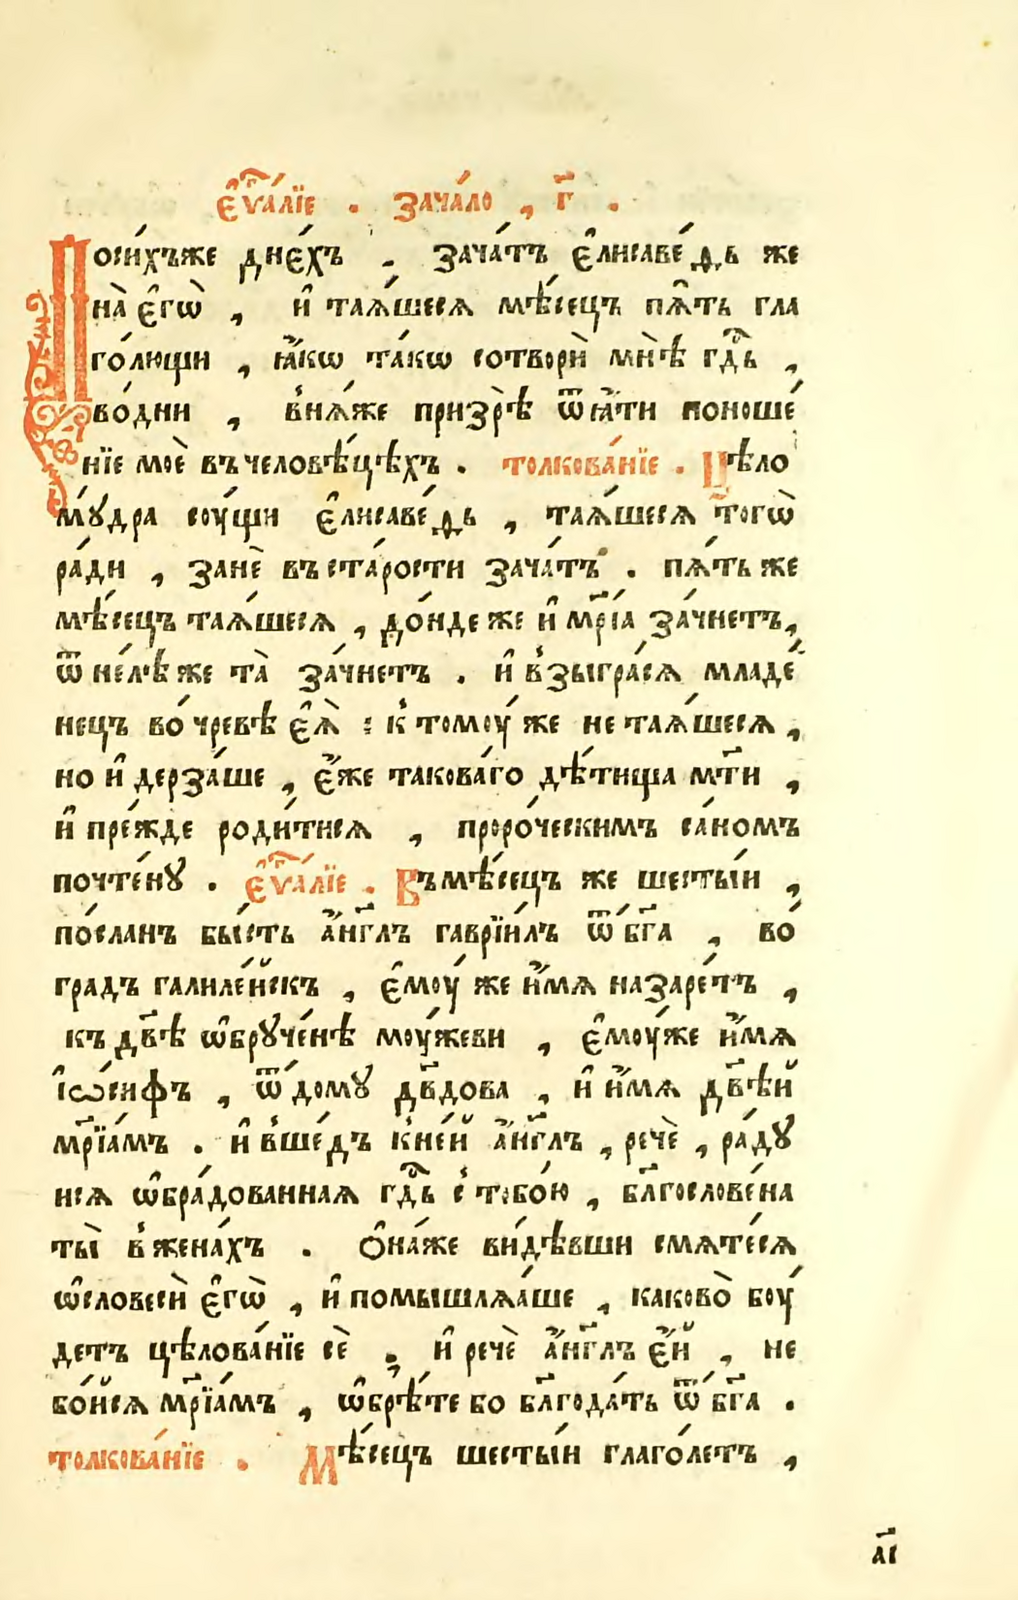 є҆ѵⷢ҇а́лїе . зача́ло , г҃ .
Поси́хъже днє́хъ . зача́тъ є҆лисаве́ѳь же
на̀ є҆гѡ̀ , и҆ таѧ́шесѧ мѣ́сецъ пѧ҆ть гла
го́лющи , ꙗ҆́кѡ та́кѡ сотвори̑ мнѣ̀ гдⷭ҇ь ,
во́дни , внѧ́же призрѣ̀ ѿꙗ҆́ти поноше́
нїе моѐ въчеловѣ́цѣхъ . толкова́нїе . Цѣ́ло
мꙋ́дра соу́щи є҆лисаве́ѳь , таѧ́шесѧ тогѡ̀
ра́ди , занѐ въста́рости зача́тъ . пѧ́ть же
мѣ́сецъ таѧ́шесѧ , до́нде же и҆ мр҃і́а за́чнетъ,
ѿ не́лѣ же та̀ за́чнетъ . и҆ взыгра́сѧ младе́
нецъ во́ чревѣ є҆ѧ̀ : к томоу́ же не таѧ́шесѧ ,
но и҆ дерза́ше , є҆́же такова́го дѣ́тища мт҃и ,
и҆ пре́жде роди́тисѧ , проро́ческимъ са́номъ
почте́нꙋ . є҆ѵⷢ҇а́лїе . Въмѣ́сецъ же ше́стыи ,
по́сланъ бы́сть а҆́нг҃лъ гаврїи́лъ ѿ бг҃а , во́
градъ галиле́йскъ , є҆моу́ же и҆́мѧ назаре́тъ ,
къ дв҃ѣ ѡ҆брꙋче́нѣ моу́жеви , є҆моу́же и҆́мѧ
і҆ѡ́сифъ , ѿ до́мꙋ дв҃дова , и҆ и҆́мѧ дв҃ѣй
мр҃їа́мъ . и҆ вше́дъ кне́й а҆́нг҃лъ , речѐ , ра́дꙋ
исѧ ѡ҆бра́дованнаѧ гдⷭ҇ь с тобо́ю , бл҃гослове́на
ты̀ в жена́хъ . Ѻ҆на́же ви́дѣвши смѧте́сѧ
ѡ҆словесѝ є҆гѡ̀ , и҆ помышлѧ́аше , каково̀ боу́
детъ цѣлова́нїе сѐ . и҆ речѐ а҆́нг҃лъ є҆́й , не
бо́йсѧ мр҃їа́мъ , ѡ҆брѣ́те бо бл҃года́ть ѿ бг҃а .
толкова́нїе . Мѣ́сецъ шесты́и глаго́летъ ,
а҃і